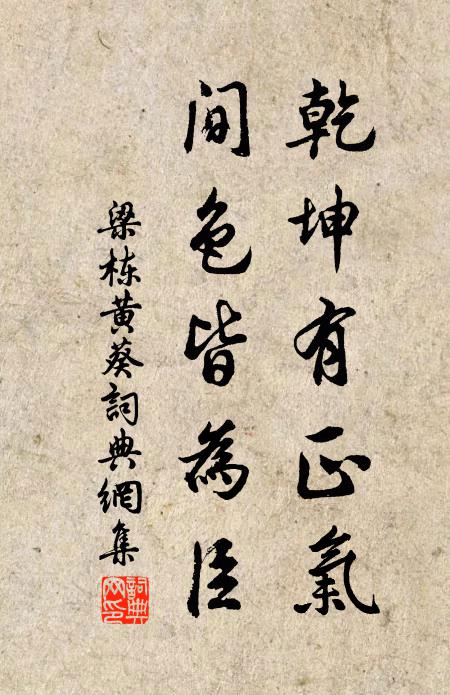 乾坤有正氣
间色皆為臣
梁栋黄葵詞典網集
詞典